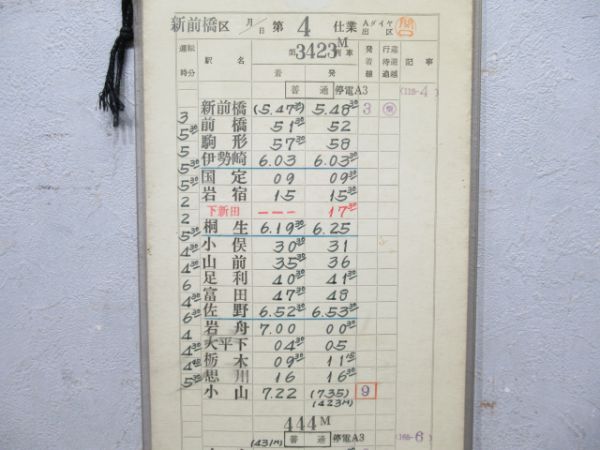 新前橋区 月/日 第 4 仕業 Aダイヤ 出区
運転時分 駅名 第3423M列車 着 発 発着線 行違待避 退避越 記事
普通 停電A3 (115-4)
新前橋 (5.47³⁰) 5.48³⁰ 3
3 前橋 51³⁰ 52
5³⁰ 駒形 57³⁰ 58
5 伊勢崎 6.03 6.03³⁰
5³⁰ 国定 09 09³⁰
5 岩宿 15 15³⁰
2 下新田 --- 17³⁰
2 桐生 6.19³⁰ 6.25
5³⁰ 小俣 30³⁰ 31
4³⁰ 山前 35³⁰ 36
4³⁰ 足利 40³⁰ 41³⁰
6 富田 47³⁰ 48
4³⁰ 佐野 6.52³⁰ 6.53³⁰
6³⁰ 岩舟 7.00 00³⁰
4 大平下 04³⁰ 05
4³⁰ 栃木 09³⁰ 11¹⁵
4⁴⁵ 思川 16 16³⁰
5³⁰ 小山 7.22 (7.35) 9
(423M)
444M
(431M) 普通 停電A3 (165-6)